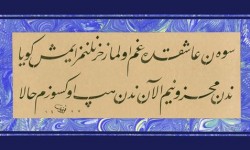 سوه ن عاشقده غم اولماز حزنلنمز ایمش کویا
ندن محزونیم الآن ندن اوکسوزم حالا